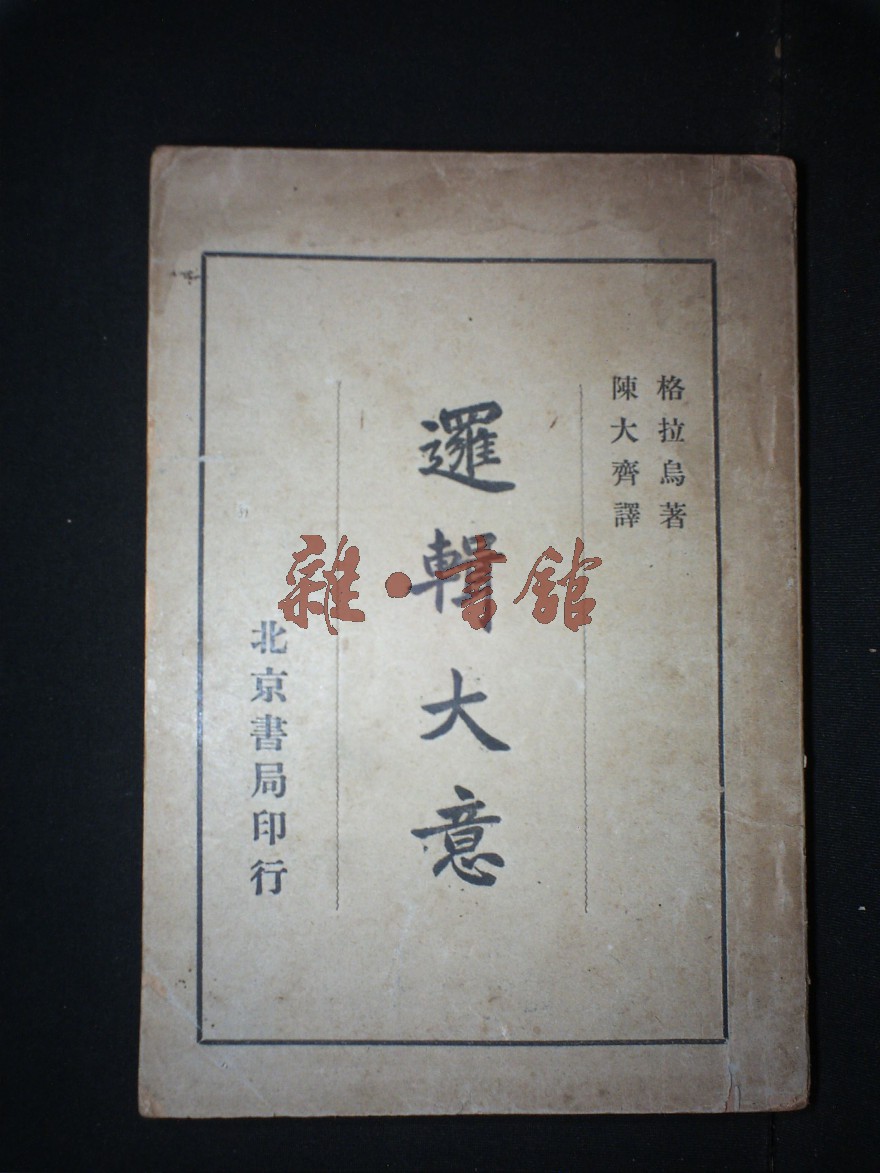 格拉烏著
陳大齊譯
邏輯大意
北京書局印行
雜·書館